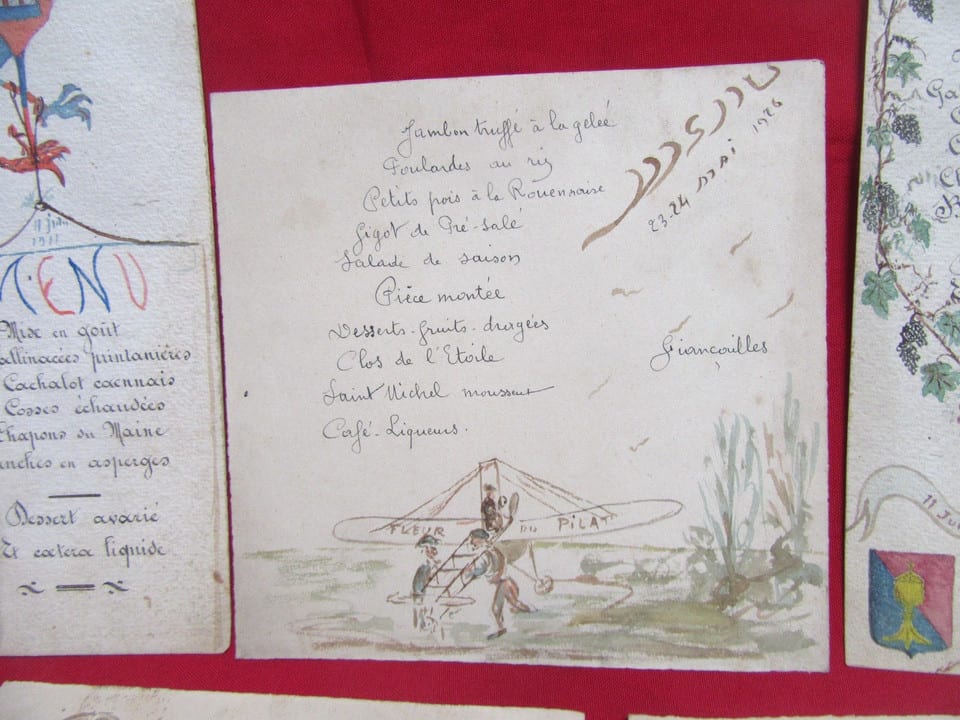 11 Juin
1911
MENU
Mise en goût
allinacées printanières
Cachalot caennais
Cosses échaudées
Chapons du Maine
anches en asperges
Dessert avarié
Et cætera liquide
Jambon truffé à la gelée
Poulardes au riz
Petits pois à la Rouennaise
Gigot de Pré-salé
Salade de saison
Pièce montée
Desserts-fruits-dragées
Clos de l'Etoile
Saint Michel mousseux
Café-Liqueurs.
23-24 MAI 1926
Fiançailles
FLEUR DU PILAT
Ga
C
Ch
B
11 Jui